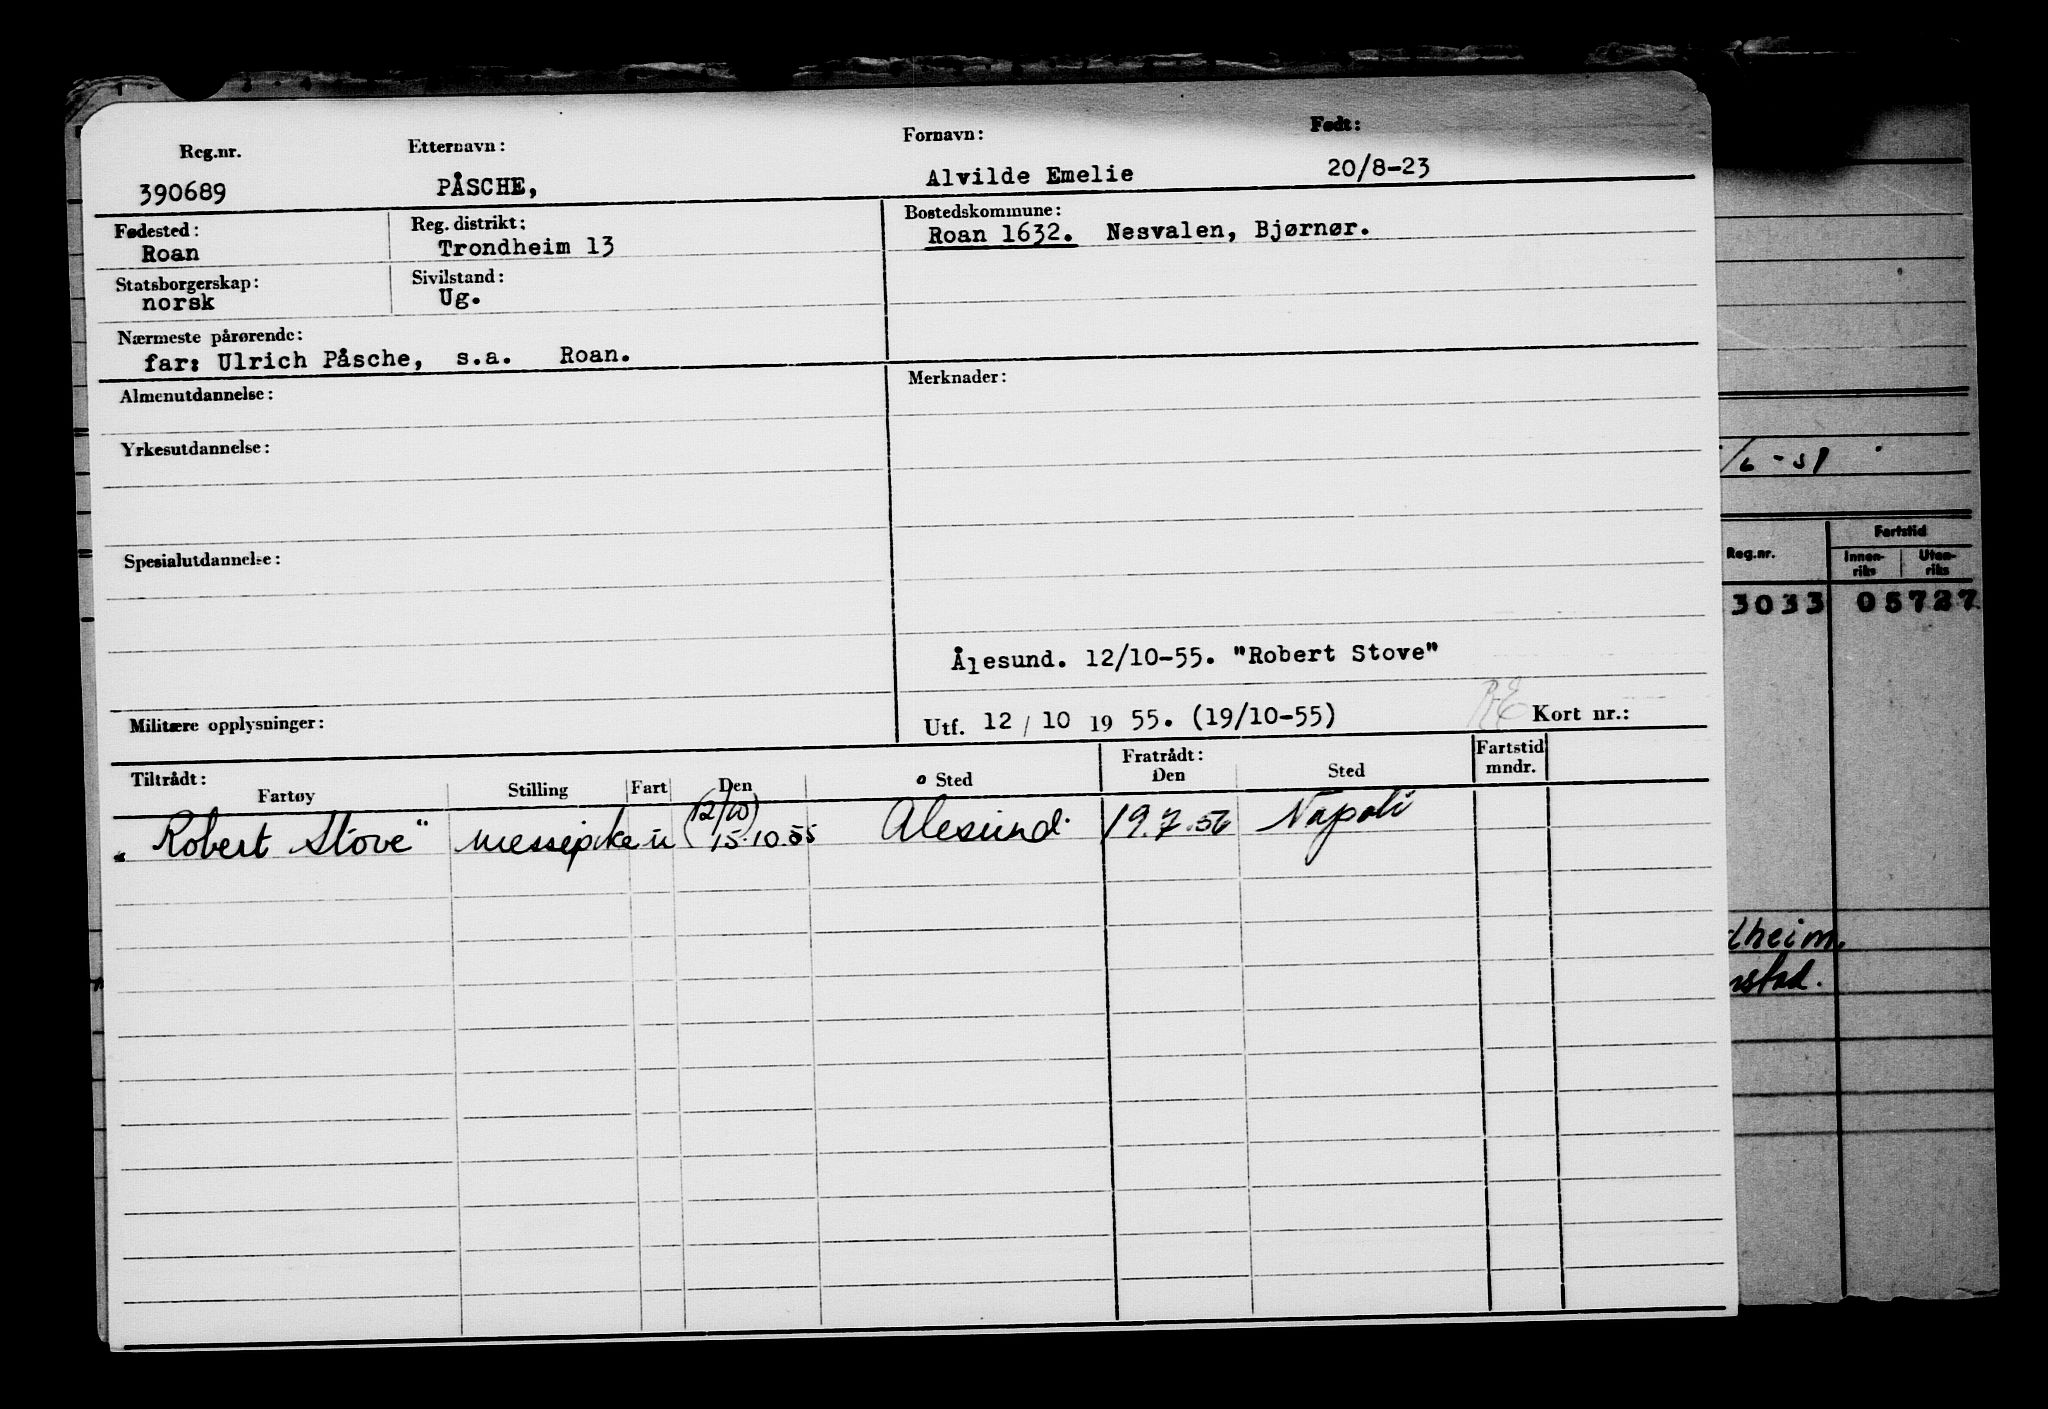 Reg.nr. Etternavn: Fornavn: Født:
390689 PÅSCHE, Alvilde Emelie 20/8-23
Fødested: Reg. distrikt: Bostedskommune:
Roan Trondheim 13 Roan 1632. Nesvalen, Bjørnør.
Statsborgerskap: Sivilstand:
norsk Ug.
Nærmeste pårørende:
far: Ulrich Påsche, s.a. Roan.
Almenutdannelse: Merknader:
Yrkesutdannelse:
Spesialutdannelse:
Ålesund. 12/10-55. "Robert Stove"
Militære opplysninger: Utf. 12 / 10 19 55. (19/10-55) Kort nr.:
Tiltrådt: Fratrådt: Fartstid
Fartøy Stilling Fart Den Sted Den Sted mndr.
(12/10)
"Robert Stove" messepike u 15.10.55 Ålesund. 19.7.56 Napoli
/6-51
Reg.nr. Fartstid
Innen- Uten-
riks riks
3033 05727
dheim.
stad.